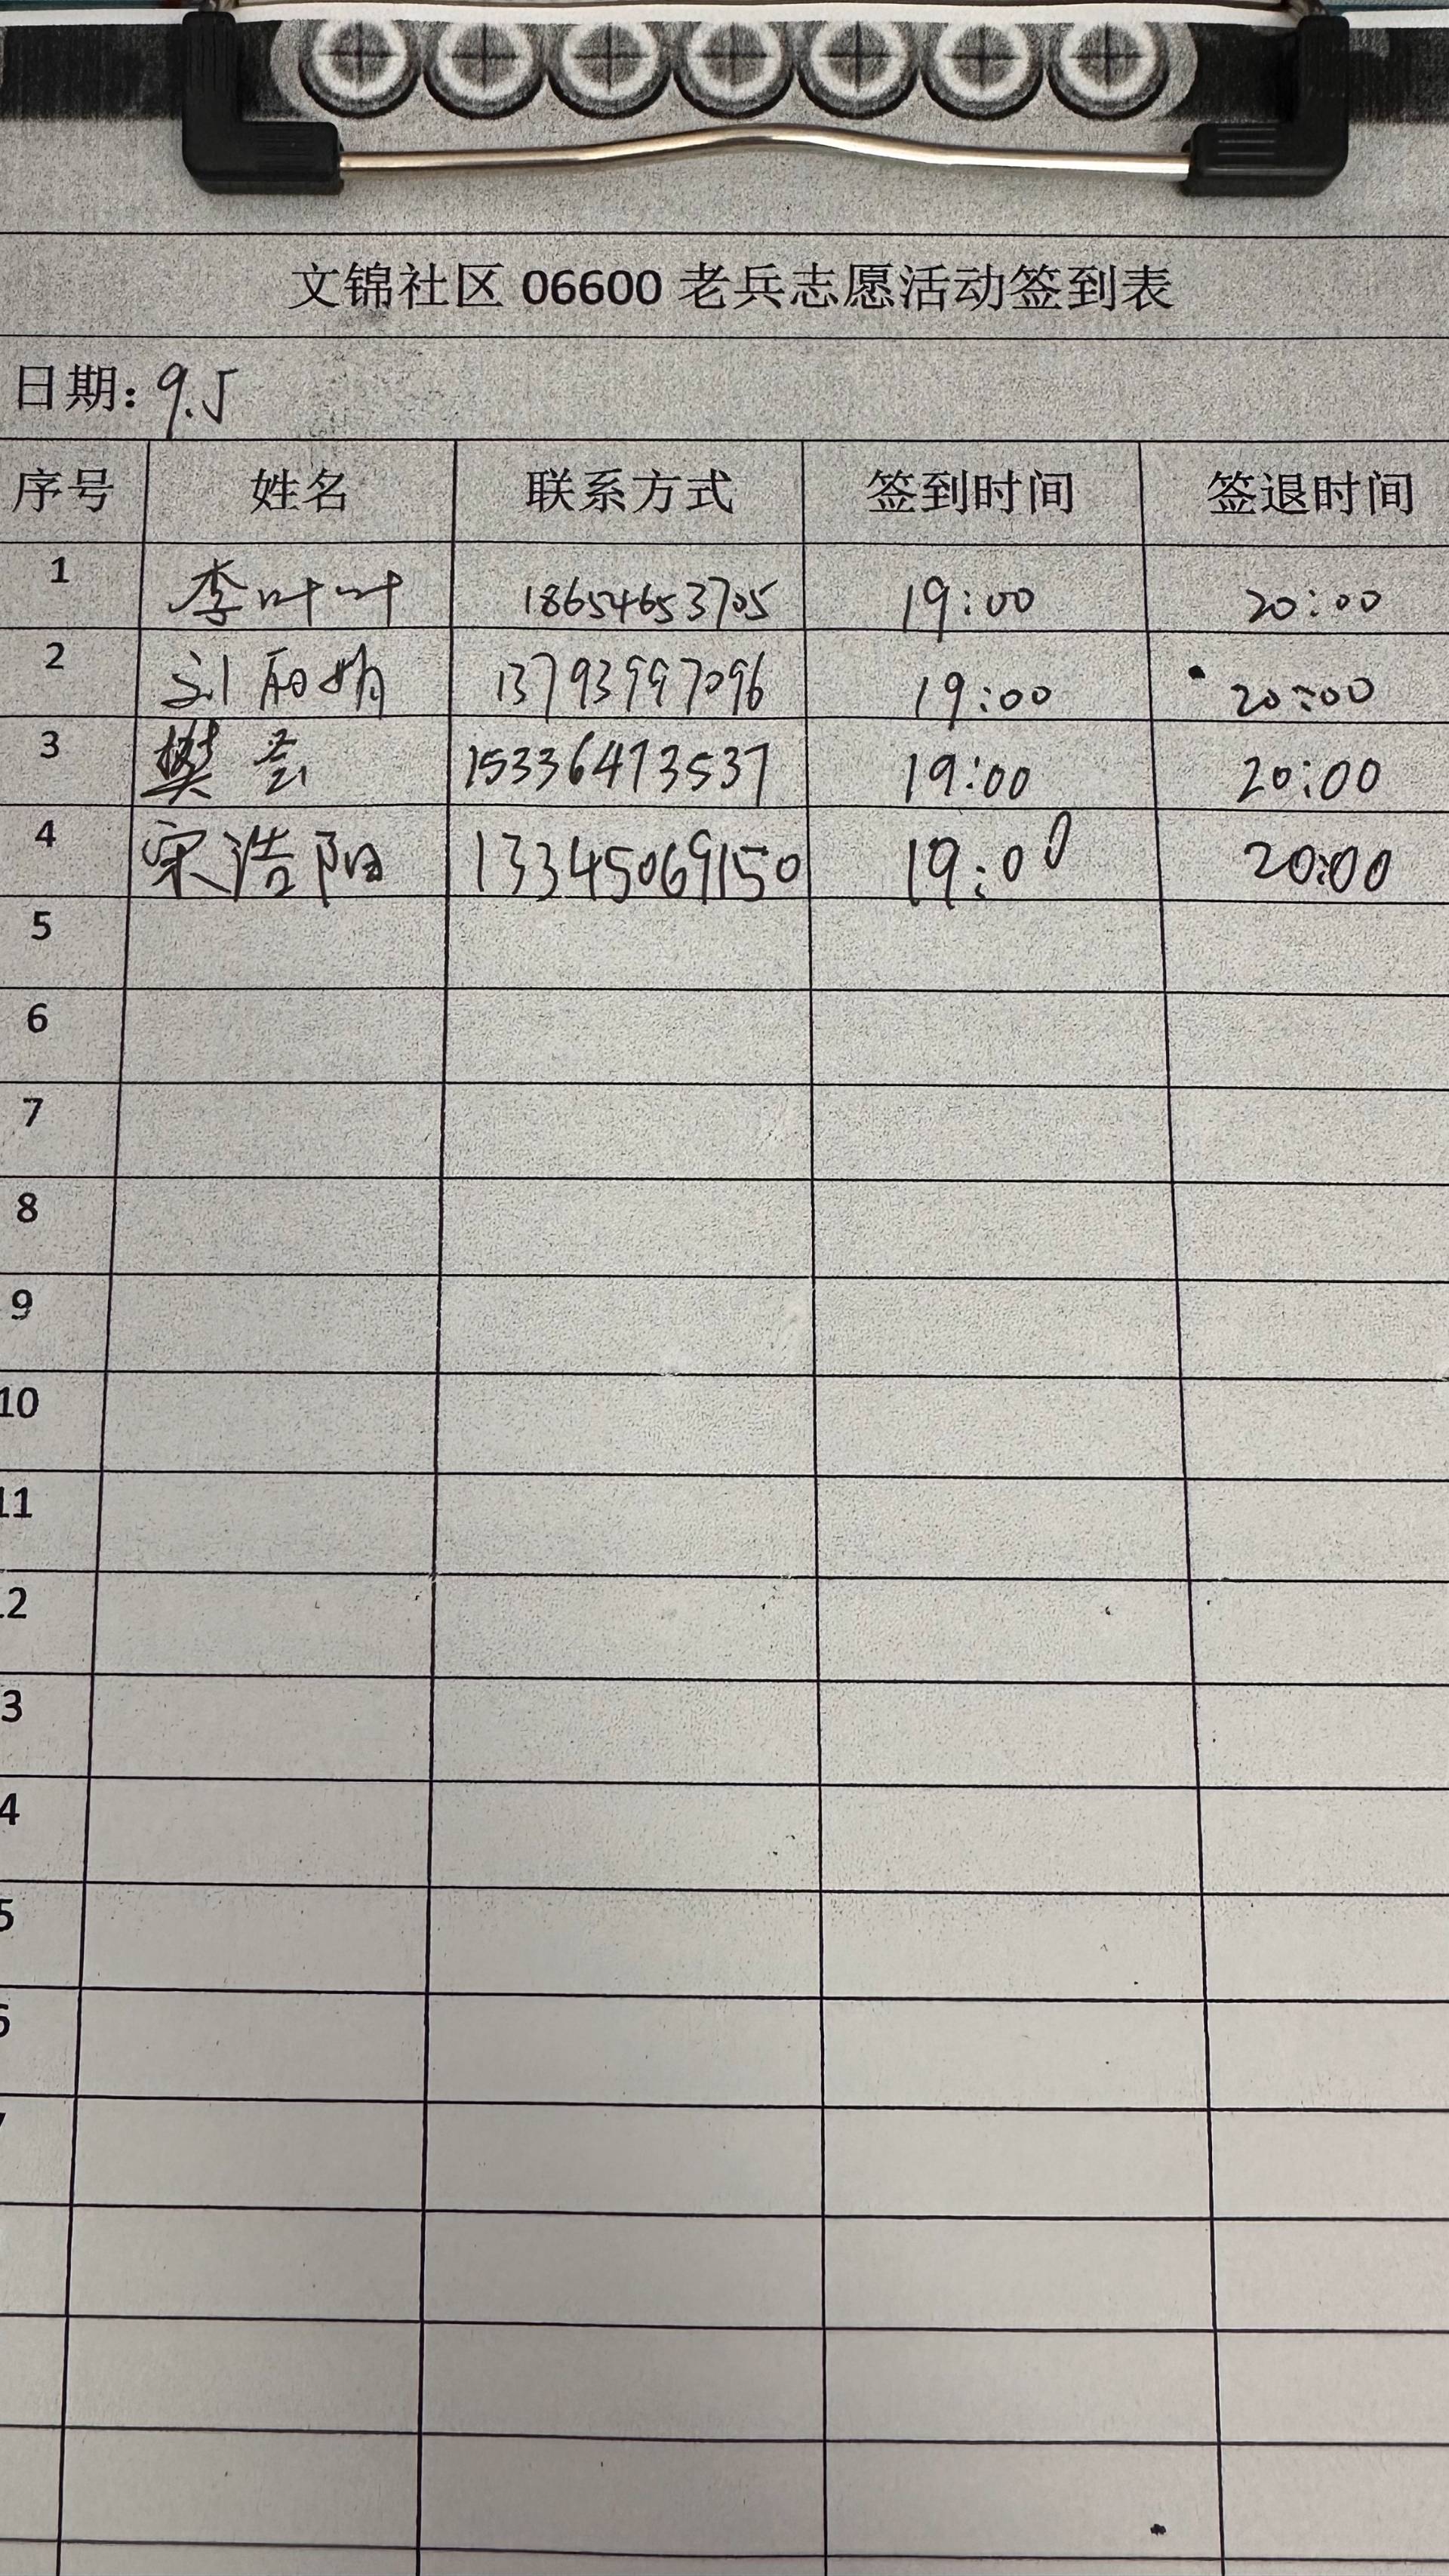 文锦社区 06600 老兵志愿活动签到表
日期：9.5
序号 姓名 联系方式 签到时间 签退时间
1 李叶叶 18654653705 19:00 20:00
2 刘 娟 13793997096 19:00 20:00
3 樊 15336473537 19:00 20:00
4 宋浩阳 13345069150 19:00 20:00
5
6
7
8
9
10
11
2
3
4
5
6